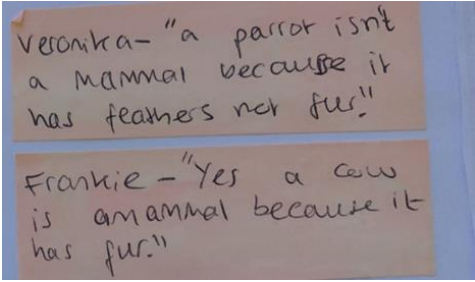 Veronika - "a parrot isn't
a mammal because it
has feathers not fur."
Frankie - "Yes a cow
is amammal because it
has fur."